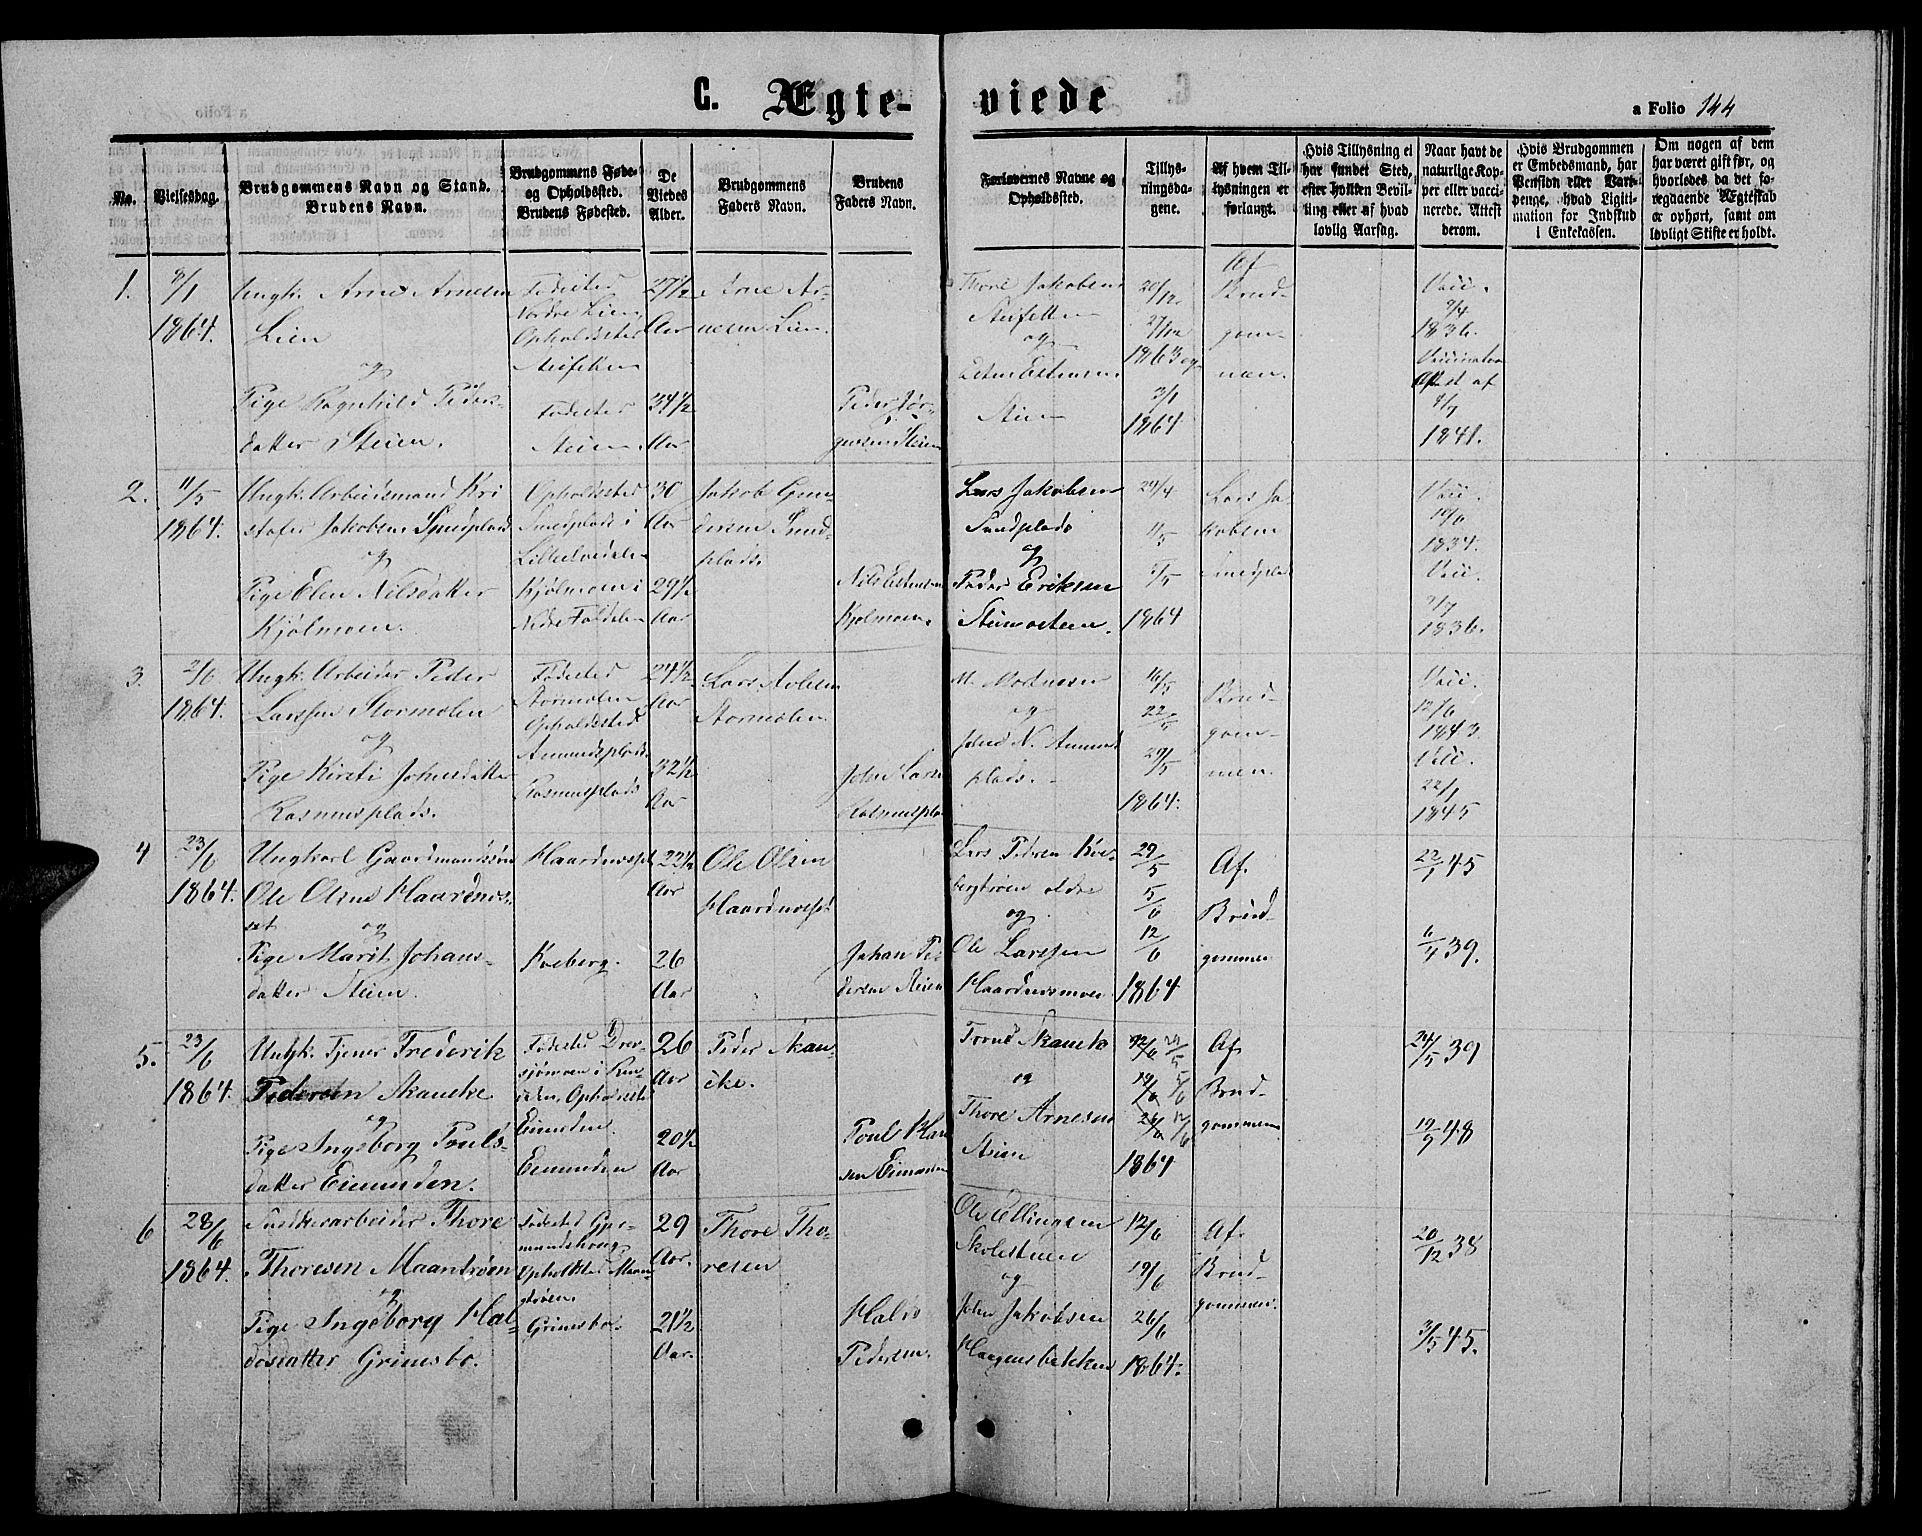 C. Ægte-
viede
a Folio 144
No.
Vielsesdag.
Brudgommens Navn og Stand.
Brudens Navn.
Brudgommens Føde-
og Opholdssted.
Brudens Fødested.
De
Viedes
Alder.
Brudgommens
Faders Navn.
Brudens
Faders Navn.
Forlovernes Navne og
Opholdssted.
Tillys-
ningsda-
gene.
Af hvem Til-
lysningen er
forlangt.
Hvis Tillysning ei
har fundet Sted,
efter hvilken Bevil-
ling eller af hvad
lovlig Aarsag.
Naar havt de
naturlige Kop-
per eller vacci-
nerede. Attest
derom.
Hvis Brudgommen
er Embedsmand, har
Pension eller Vart-
penge, hvad Ligiti-
mation for Indskud
i Enkekassen.
Om nogen af dem
har været gift før, og
hvorledes da det fo-
regaaende Ægteskab
er ophørt, samt om
lovligt Skifte er holdt.
1.
1864.
Ungk. Arne Arnesen
Lien
og
Pige Ragnhild Peders-
datter Steien.
Fødested
Nordre Lien
Opholdssted
Fødested
Steien
27 1/2
Aar
34 1/2
Aar
Arne Ar-
nesen Lien
Peder Jør-
gensen Steien
Thore Jakobsen
og
Steien
20/12
27/12
1863 og
3/1
1864
Af
Brud-
gom-
men.
Vacc.
9/4
1836.
1841.
2.
11/5
1864.
Ungk. Arbeidsmand Kri
stofer Jakobsen Smedplads
og
Pige Elen Nilsdatter
Kjølmoen.
Opholdssted
Smedplads i
Lilleelvedalen
Kjølmoen i
Nedre Foldalen
30
Aar
29 1/2
Aar
Jakob Gun-
dersen Smed-
plads.
Nils Estensen
Kjølmoen.
Lars Jakobsen
Smedplads
og
Peder Eriksen
24/4
1/5
5/5
1864
Lars Ja
kobsen
Smedplads
Vacc.
10/6
1834.
Vacc.
1836.
3.
2/6
1864.
Ungk. Arbeider Peder
Larssen Stormoen
og
Pige Kirsti Johnsdatter
Rasmusplads.
Fødested
Stormoen
Opholdssted
Amundsplads.
Rasmusplads
24 1/2
Aar
32 1/2
Aar
Lars
Stormoen.
John Lars
Rasmuspla
og
John N. Amund
plads.
16/5
22/5
29/5
1864.
Brud-
gom-
men.
Vacc.
12/6
1843
Vacc.
22/1
1845
4
23/6
1864.
Ungkarl Gaardmandssøn
Ole Olsen Haardmos-
set
og
Pige Marit Johans-
datter Steien.
Kveberg.
22 1/2
Aar
26
Aar
Ole Olsen
Johan Pe
dersen Steien
Lars Pedersen Kve-
og
Ole Larssen
29/5
5/6
12/6
1864
Af
Brud-
gommen
22/1 45
6/4 39.
5.
23/6
1864.
Ungk. Tjener Frederik
Pedersen Skancke
og
Pige Ingeborg Pouls-
datter Eimunden.
Eimunden.
Eimunden
26
Aar
20 1/2
Aar
Peder Skan-
cke.
Poul Han
sen Eimunden
Skancke
og
Thore Arnesen
Steien
1864
Af
Brud-
gommens
24/5 39
19/9 48
6
28/6
1864.
Snedkerarbeider Thore
Thoresen Maanstrøen
og
Pige Ingeborg Hal-
dosdatter Grimsbo.
Fødested
Opholdssted Maan
strøen.
Grimsbo.
29
Aar.
21 1/2
Aar.
Thore Tho-
resen
Haldo
Pedersen.
Ole Ellingsen
Skolestuen
og
John Jakobsen
Haugensbakken
12/6
19/6
26/6
1864.
Af
Brud-
gommen.
20/12 38
3/5 45.